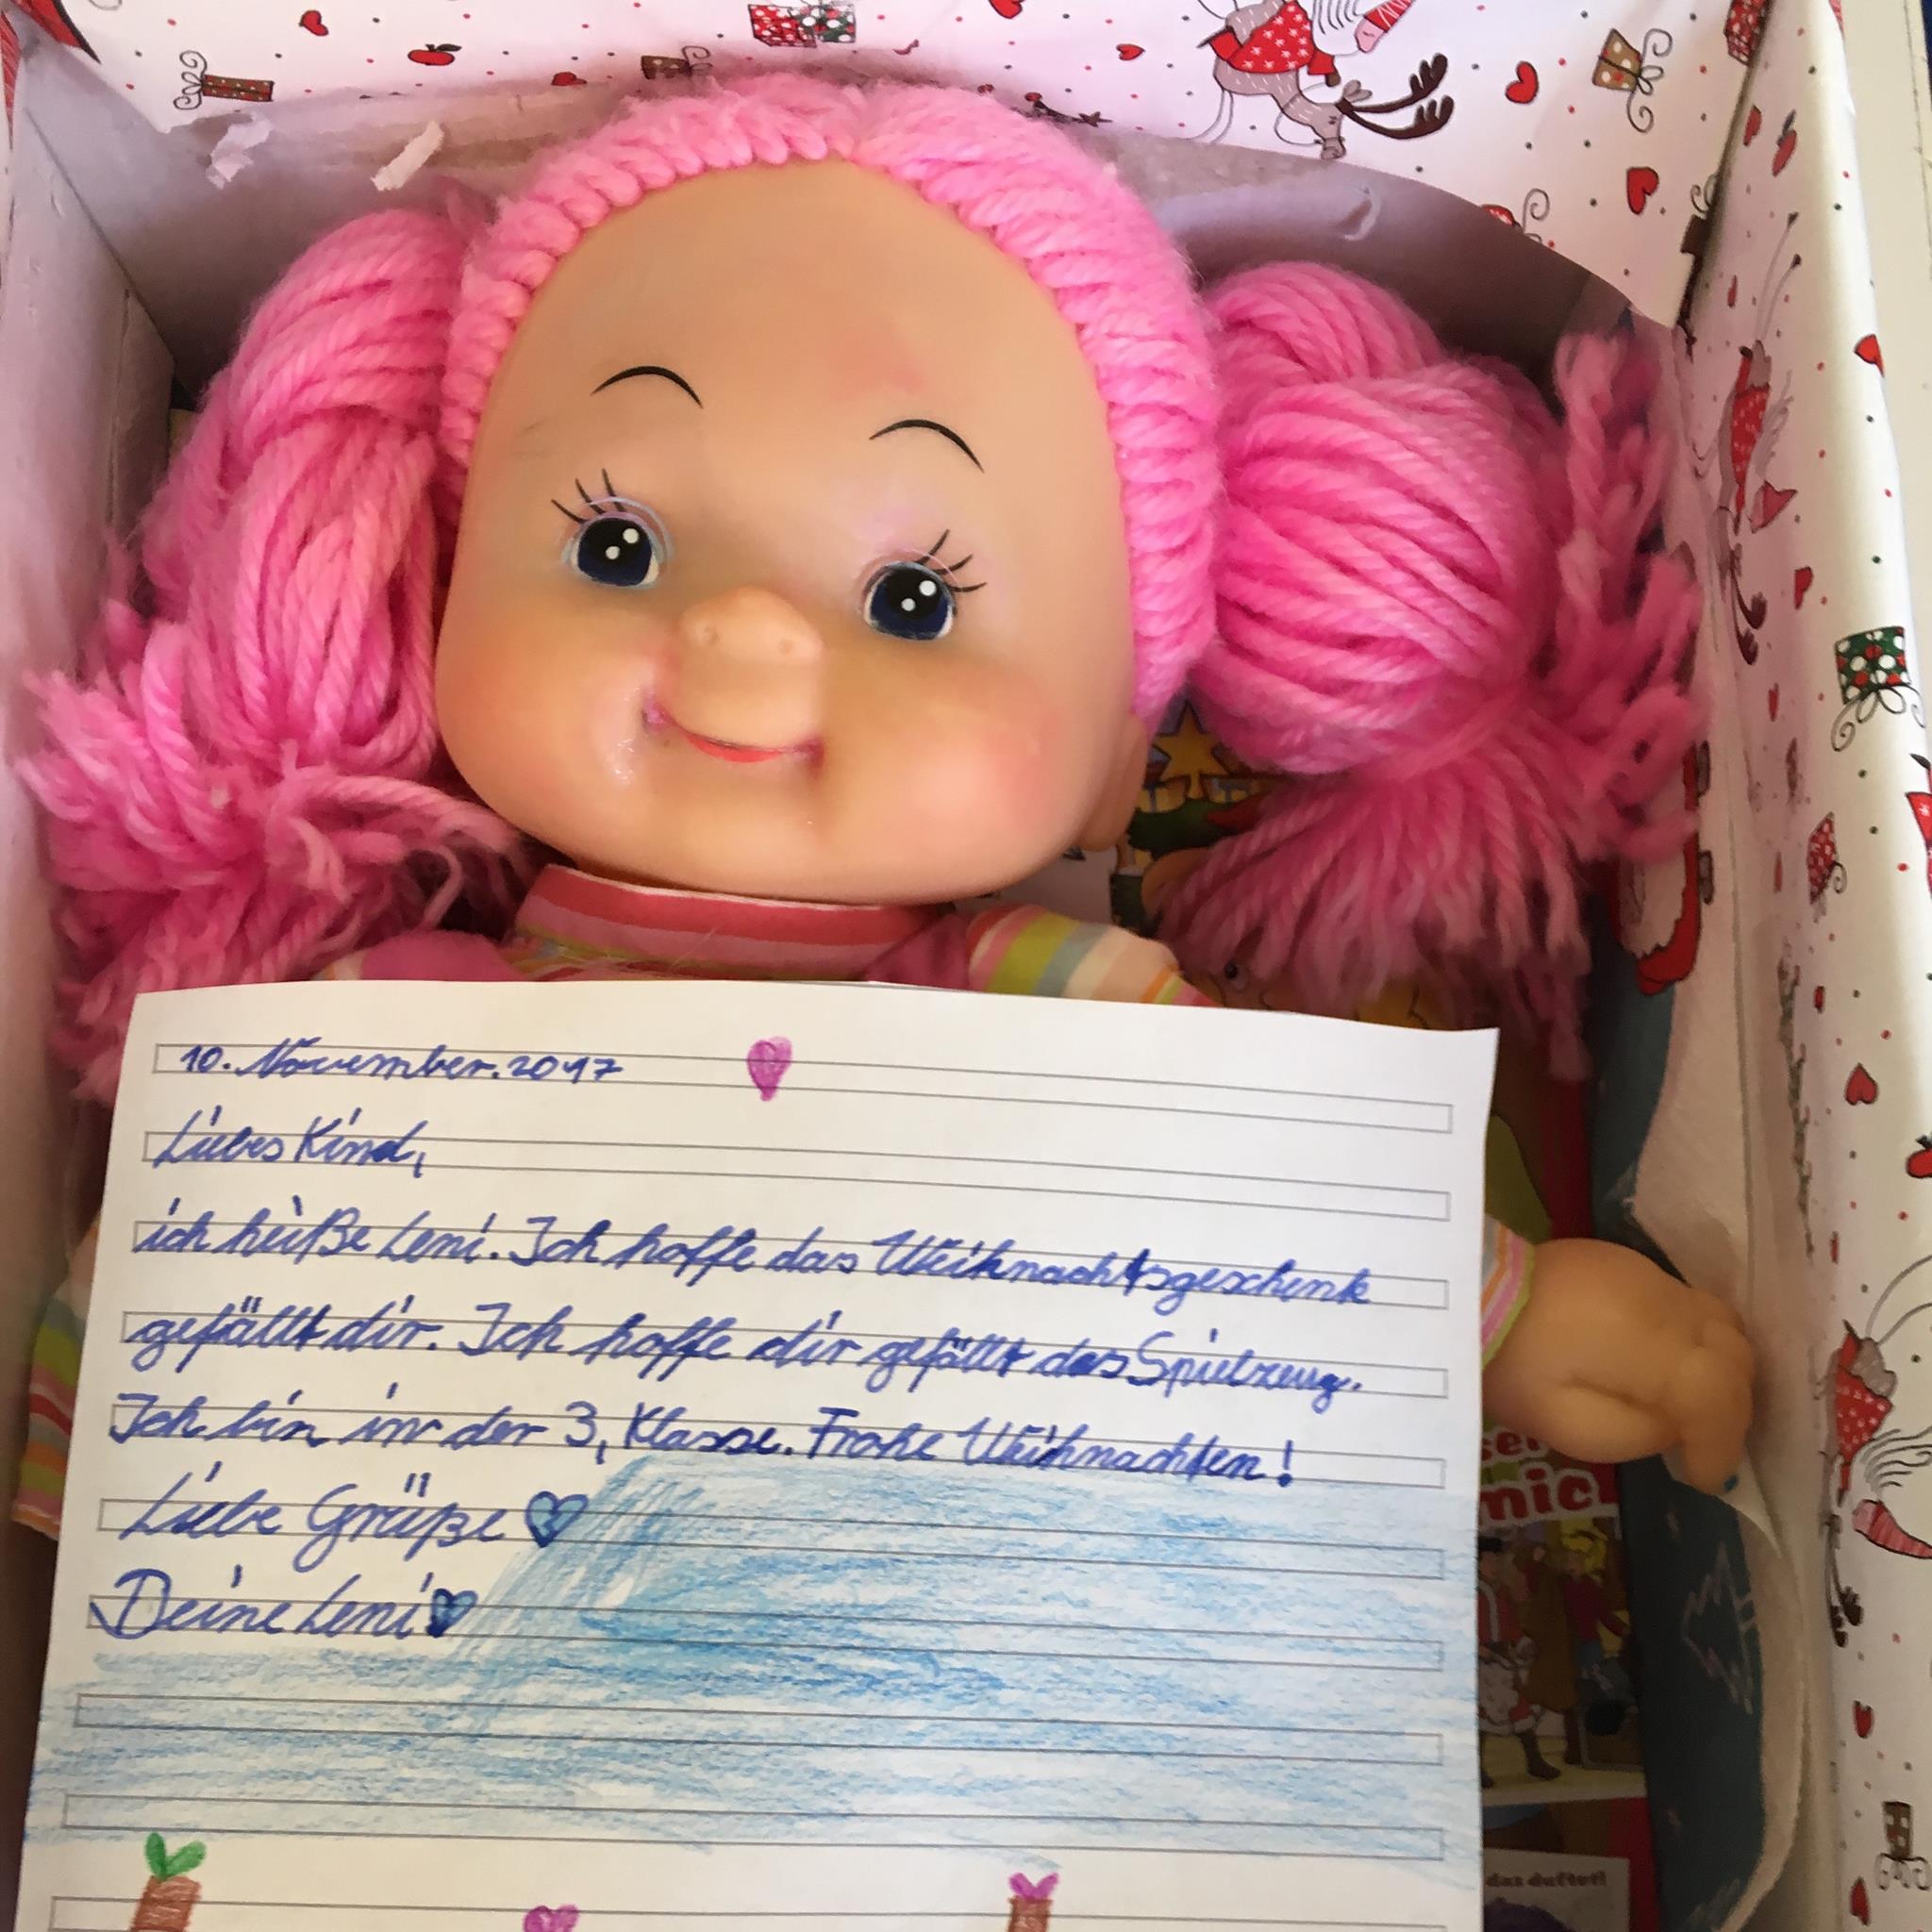 10. November.2017
Liebes Kind,
ich heiße Leni. Ich hoffe das Weihnachtsgeschenk
gefällt dir. Ich hoffe dir gefällt das Spielzeug.
Ich bin in der 3, Klasse. Frohe Weihnachten!
Liebe Grüße
Deine Leni
das duftet!